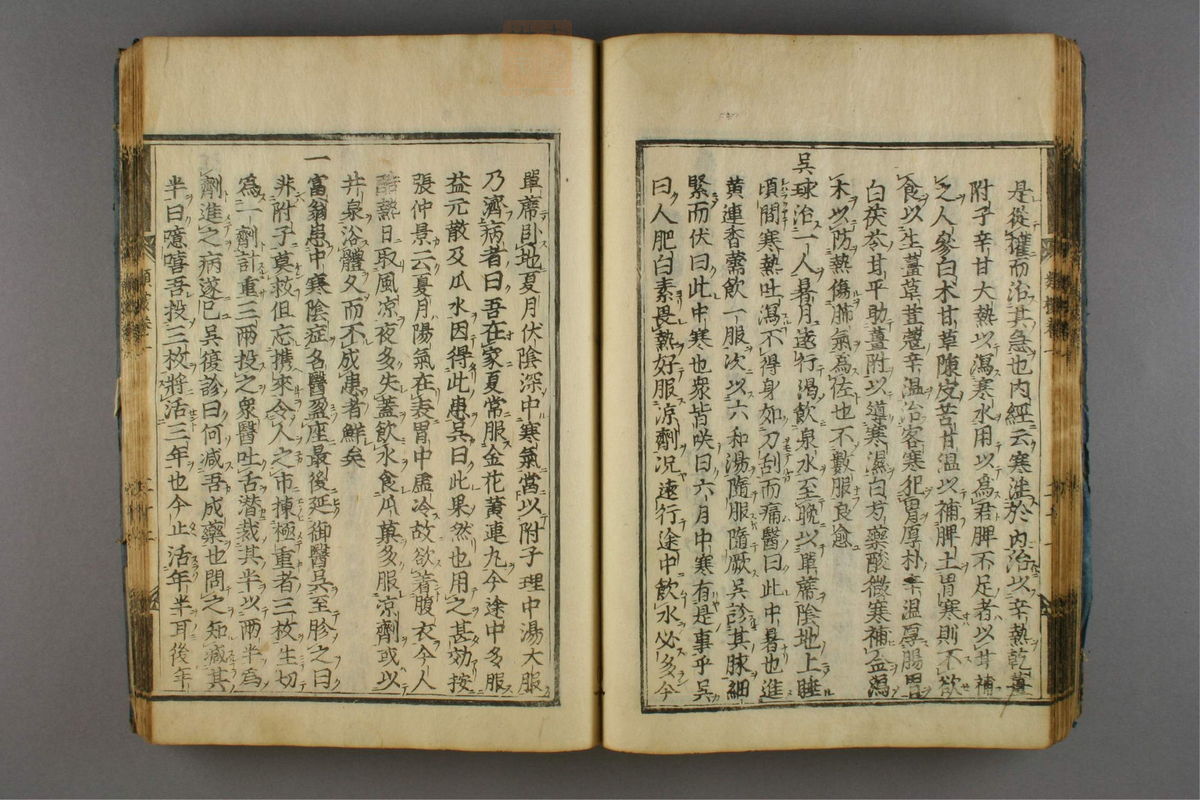 是從權而治其急也內經云寒淫於內治以辛熱乾薑
附子辛甘大熱以瀉寒水用以爲君脾不足者以甘補
之人參白术甘草陳皮苦甘溫以補脾土胃寒則不欲
食以生薑草荳蔲辛溫治客寒犯胃厚朴辛溫厚腸胃
白茯苓甘平助薑附以導寒濕白芍藥酸微寒補金瀉
木以防熱傷肺氣爲佐也不數服良愈
吳球治一人暑月遠行渴飲泉水至晚以單蓆陰地上睡
頃間寒熱吐瀉不得身如刀刮而痛醫曰此中暑也進
黄連香薷飲一服次以六和湯隨服隨厥吳診其脉細
緊而伏曰此中寒也衆皆咲曰六月中寒有是事乎吳
曰人肥白素畏熱好服凉劑况遠行途中飲水必多今
單席臥地夏月伏陰深中寒氣當以附子理中湯大服
乃濟病者曰吾在家夏常服金花黄連丸今途中多服
益元散及瓜水因得此患吳曰此果然也用之甚効按
張仲景云夏月陽氣在表胃中虚冷故欲着腹衣今人
酷熱日取風凉夜多失蓋飲水食瓜菓多服凉劑或以
井泉浴體久而不成患者鮮矣
一富翁患中寒陰症名醫盈座最後延御醫吳至胗之曰
非附子莫救但忘携來令人之市揀極重者三枚生切
爲一劑計重三兩投之衆醫吐舌潜裁其半以兩半爲
劑進之病遂已吳復診曰何减吾成藥也問之知减其
半曰噫嘻吾投三枚將活三年也今止活年半耳後年